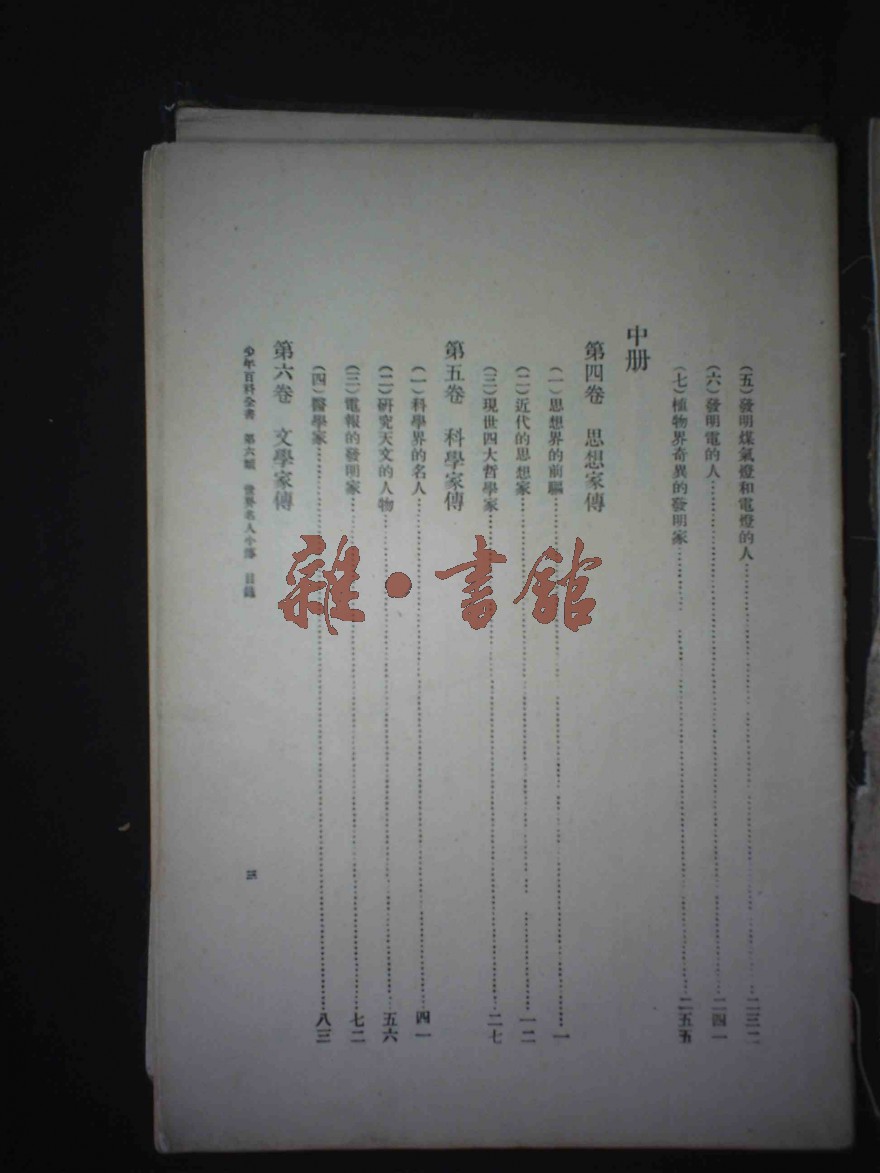 (五)發明煤氣燈和電燈的人……二三二
(六)發明電的人……二四一
(七)植物界奇異的發明家……二五五
中册
第四卷 思想家傳
(一)思想界的前驅……一
(二)近代的思想家……一二
(三)現世四大哲學家……二七
第五卷 科學家傳
(一)科學界的名人……四一
(二)研究天文的人物……五六
(三)電報的發明家……七二
(四)醫學家……八三
第六卷 文學家傳
少年百科全書 第六類 世界名人小傳 目錄
雜·書館